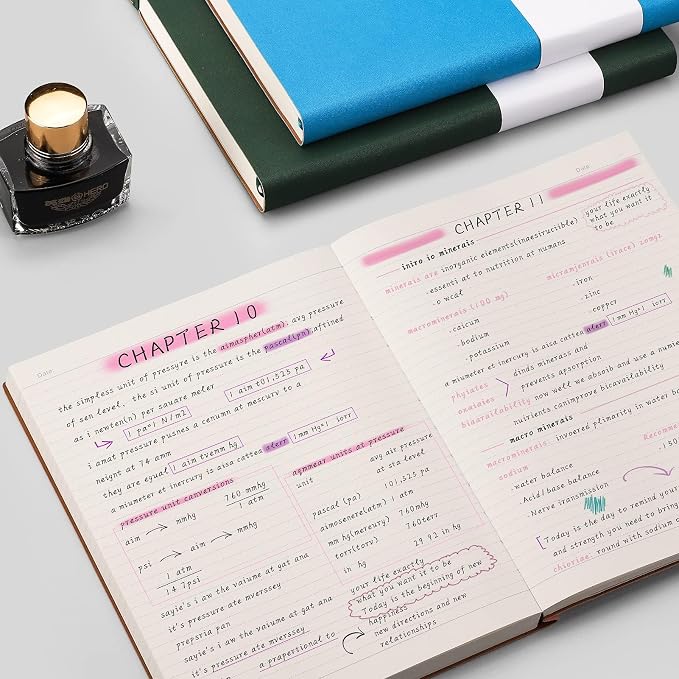 HERO
Date
CHAPTER 10
the simpless unit of pressyre is the aimaspher(atm); avg pressure
of sen level, the si unit of pressure is the pascal(pn);aftined
as i newten(n) per sauare meler
1 pa=1 N/m2 1 aim t01,325 pa
i amat pressure pusnes a cenumn at mescurv to a
neight at 74 amm
they are equal 1 aim tvemm hg
a miumeter et inercury is aisa cattea aterr 1 mm Hg=1 1orr
pressure unit conversions
aim mmhg 760 mmhg
1 atm
psi aim mmhg
1 atm
14.7psi
sayie's i aw the vaiume at gat ana
it's pressure ate mverssey
prepsria pan
sayie's i aw the vaiume at gat ana
it's pressure ate mverssey
a prapertional to
agnmear units at pressure
unit avg air pressure
at sta level
pascal (pa) 101,325 pa
aimosenere(atm) 1 atm
mm hg(mercury) 760mhg
torr(torv) 760terr
in hg 29.92 in hg
your life exactly
what you want it to be
Today is the beginning of new
happiness
new directions and new
relationships
Date
CHAPTER 11
your life exactly
what you want it
to be
iniro io minerais
minerais are inorganic elements(inaesiruciible)
essenti at to nutrition at numans
o wcal
macrominerais (100 mg)
.calcum
.bodium
.potassium
micramjenrais (irace) 20mgz
.iron
.zinc
.copper
a miumeter et inercury is aisa cattea aterr 1 mm Hg=1 1orr
phyiates
oxaiaies
dinds minerass and
prevents apsorption
bioavailability now well we absoib and use a numie
nuirients canimprove bicavailability
macro minerais
macrominerais.. invoered plimarity in water ba
sodium Recomme
water balance .150
.Acid/base balance
Nerve iransmission
Today is the day to remind your
and strength you need to bring
chloriae: round with sodium